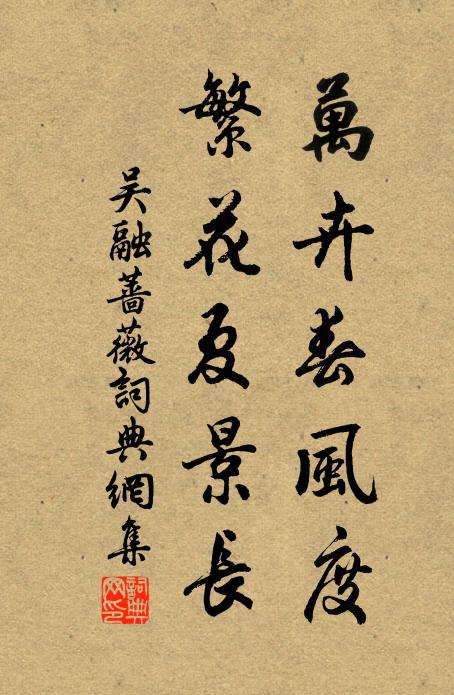 萬卉春風度
繁花夏景長
吴融薔薇詞典網集
詞典网印